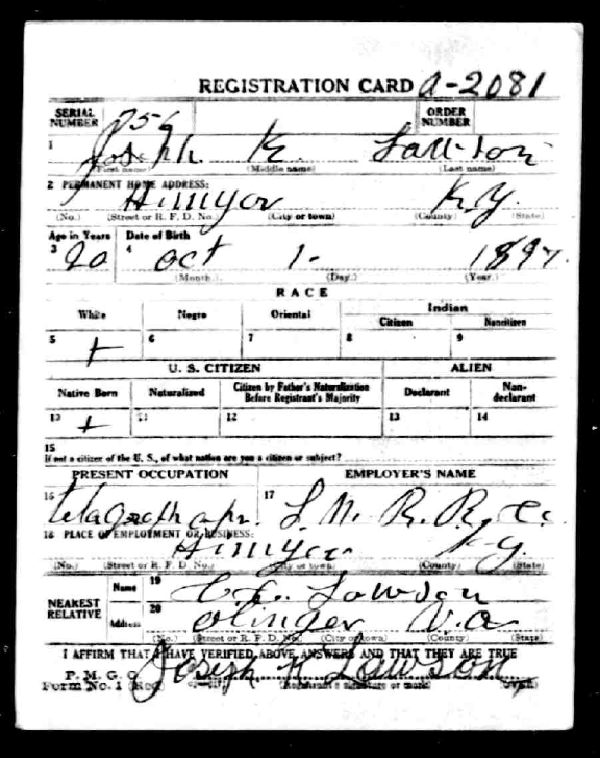 REGISTRATION CARD A-2081
SERIAL NUMBER 756 ORDER NUMBER
1 Joseph K. Lawson
(First name) (Middle name) (Last name)
2 PERMANENT HOME ADDRESS:
Himyar K.Y.
(No.) (Street or R. F. D. No.) (City or town) (County) (State)
Age in Years Date of Birth
3 20 4 Oct 1- 1897.
(Month.) (Day.) (Year.)
RACE
White Negro Oriental Indian
Citizen Noncitizen
5 + 6 7 8 9
U. S. CITIZEN ALIEN
Native Born Naturalized Citizen by Father's Naturalization Before Registrant's Majority Declarant Non-declarant
10 + 11 12 13 14
15
If not a citizen of the U. S., of what nation are you a citizen or subject?
PRESENT OCCUPATION EMPLOYER'S NAME
16 telagraph opr. 17 L. N. R. R. Co.
18 PLACE OF EMPLOYMENT OR BUSINESS:
Himyar Ky.
(No.) (Street or R. F. D. No.) (City or town) (County) (State)
NEAREST RELATIVE Name 19 Lawson
Address 20 Olinger V.a
(No.) (Street or R. F. D. No.) (City or town) (County) (State)
I AFFIRM THAT I HAVE VERIFIED ABOVE ANSWERS AND THAT THEY ARE TRUE
P. M. G. O.
Form No. 1 (Red) Joseph K Lawson
(Registrant's signature or mark)